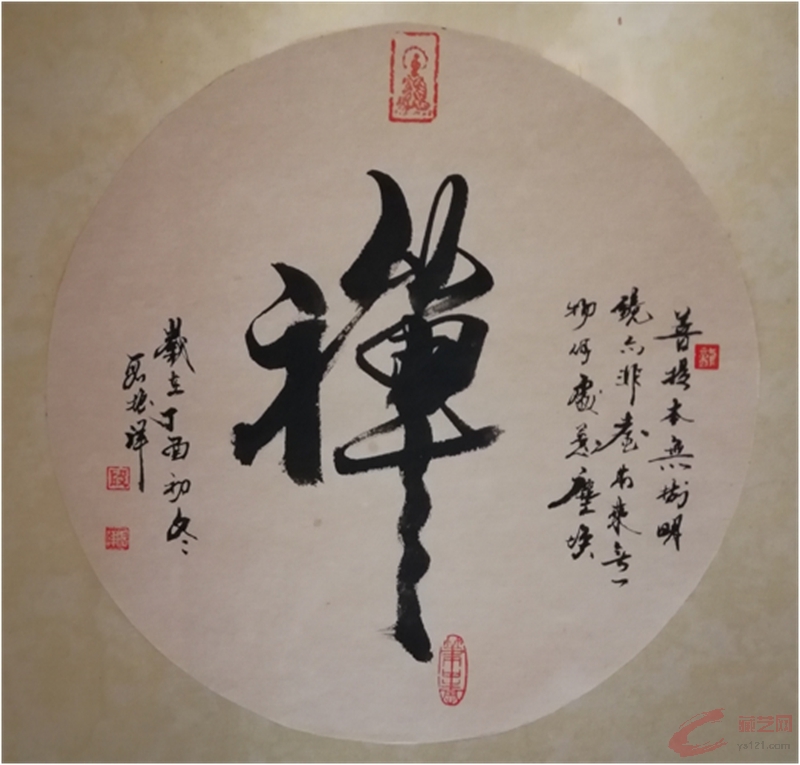 菩提本無樹明
鏡亦非臺本來無一
物何處惹塵埃
禪
歲在丁酉初冬
艺网
ys121.com